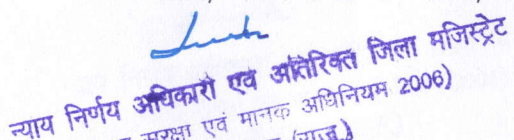 न्याय निर्णय अधिकारी एवं अतिरिक्त जिला मजिस्ट्रेट
सुरक्षा एवं मानक अधिनियम 2006)
(राज.)